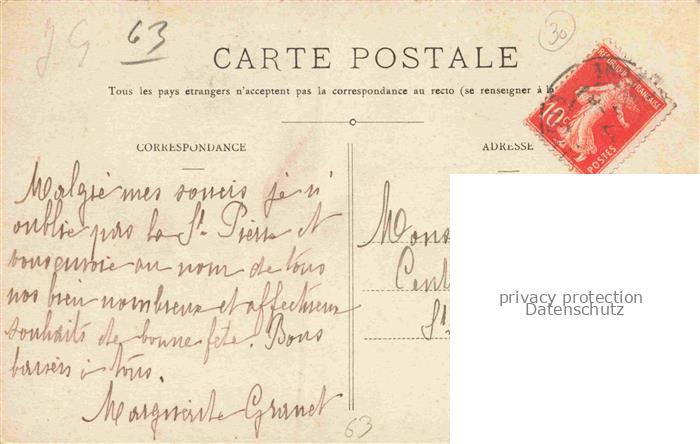 J G 63
30
CARTE POSTALE
Tous les pays étrangers n'acceptent pas la correspondance au recto (se renseigner à la
REPUBLIQUE FRANÇAISE
10 c
POSTES
CORRESPONDANCE
ADRESSE
Malgré mes soucis je n'
oublie pas la St Pierre et
vous envoie au nom de tous
nos bien nombreux et affectueux
souhaits de bonne fête. Bons
baisers à tous.
Marguerite Granet
Mons
Cent
St
63
privacy protection
Datenschutz